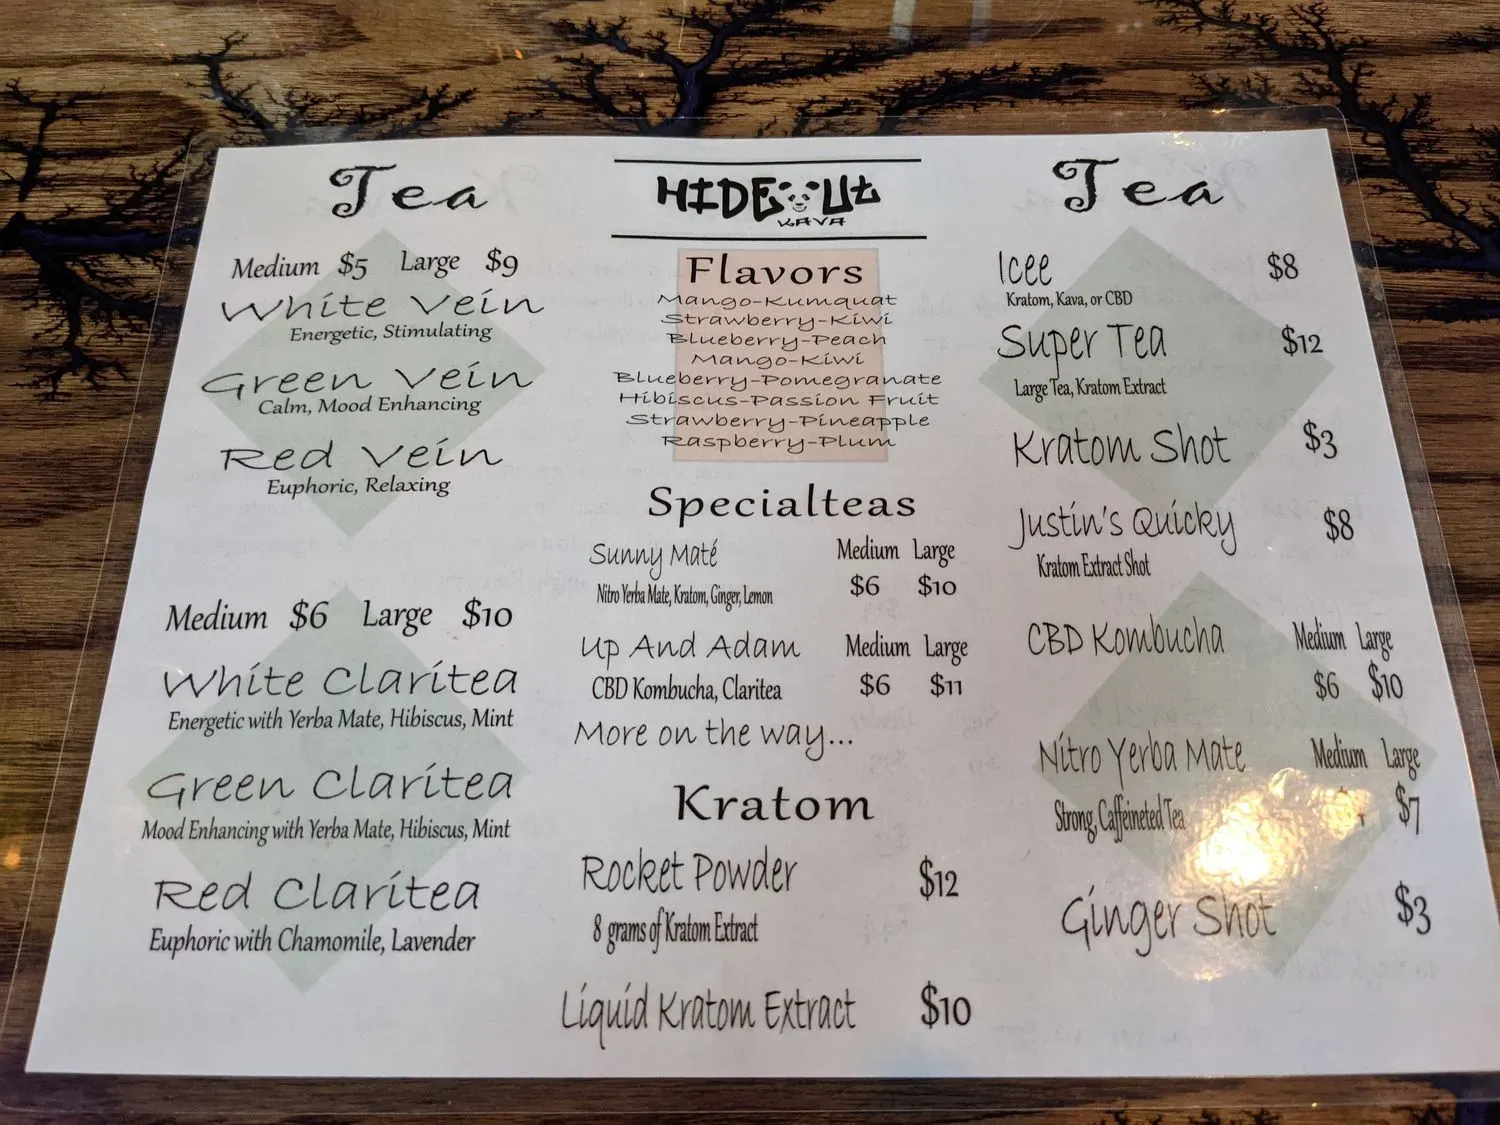 Tea
Medium $5 Large $9
White Vein
Energetic, Stimulating
Green Vein
Calm, Mood Enhancing
Red Vein
Euphoric, Relaxing
Medium $6 Large $10
White Claritea
Energetic with Yerba Mate, Hibiscus, Mint
Green Claritea
Mood Enhancing with Yerba Mate, Hibiscus, Mint
Red Claritea
Euphoric with Chamomile, Lavender
HIDEOUt
KAVA
Flavors
Mango-Kumquat
Strawberry-Kiwi
Blueberry-Peach
Mango-Kiwi
Blueberry-Pomegranate
Hibiscus-Passion Fruit
Strawberry-Pineapple
Raspberry-Plum
Specialteas
Sunny Maté Medium Large
Nitro Yerba Mate, Kratom, Ginger, Lemon $6 $10
Up And Adam Medium Large
CBD Kombucha, Claritea $6 $11
More on the way...
Kratom
Rocket Powder $12
8 grams of Kratom Extract
Liquid Kratom Extract $10
Tea
Icee $8
Kratom, Kava, or CBD
Super Tea $12
Large Tea, Kratom Extract
Kratom Shot $3
Justin's Quicky $8
Kratom Extract Shot
CBD Kombucha Medium Large
$6 $10
Nitro Yerba Mate Medium Large
Strong, Caffeineted Tea $7
Ginger Shot $3